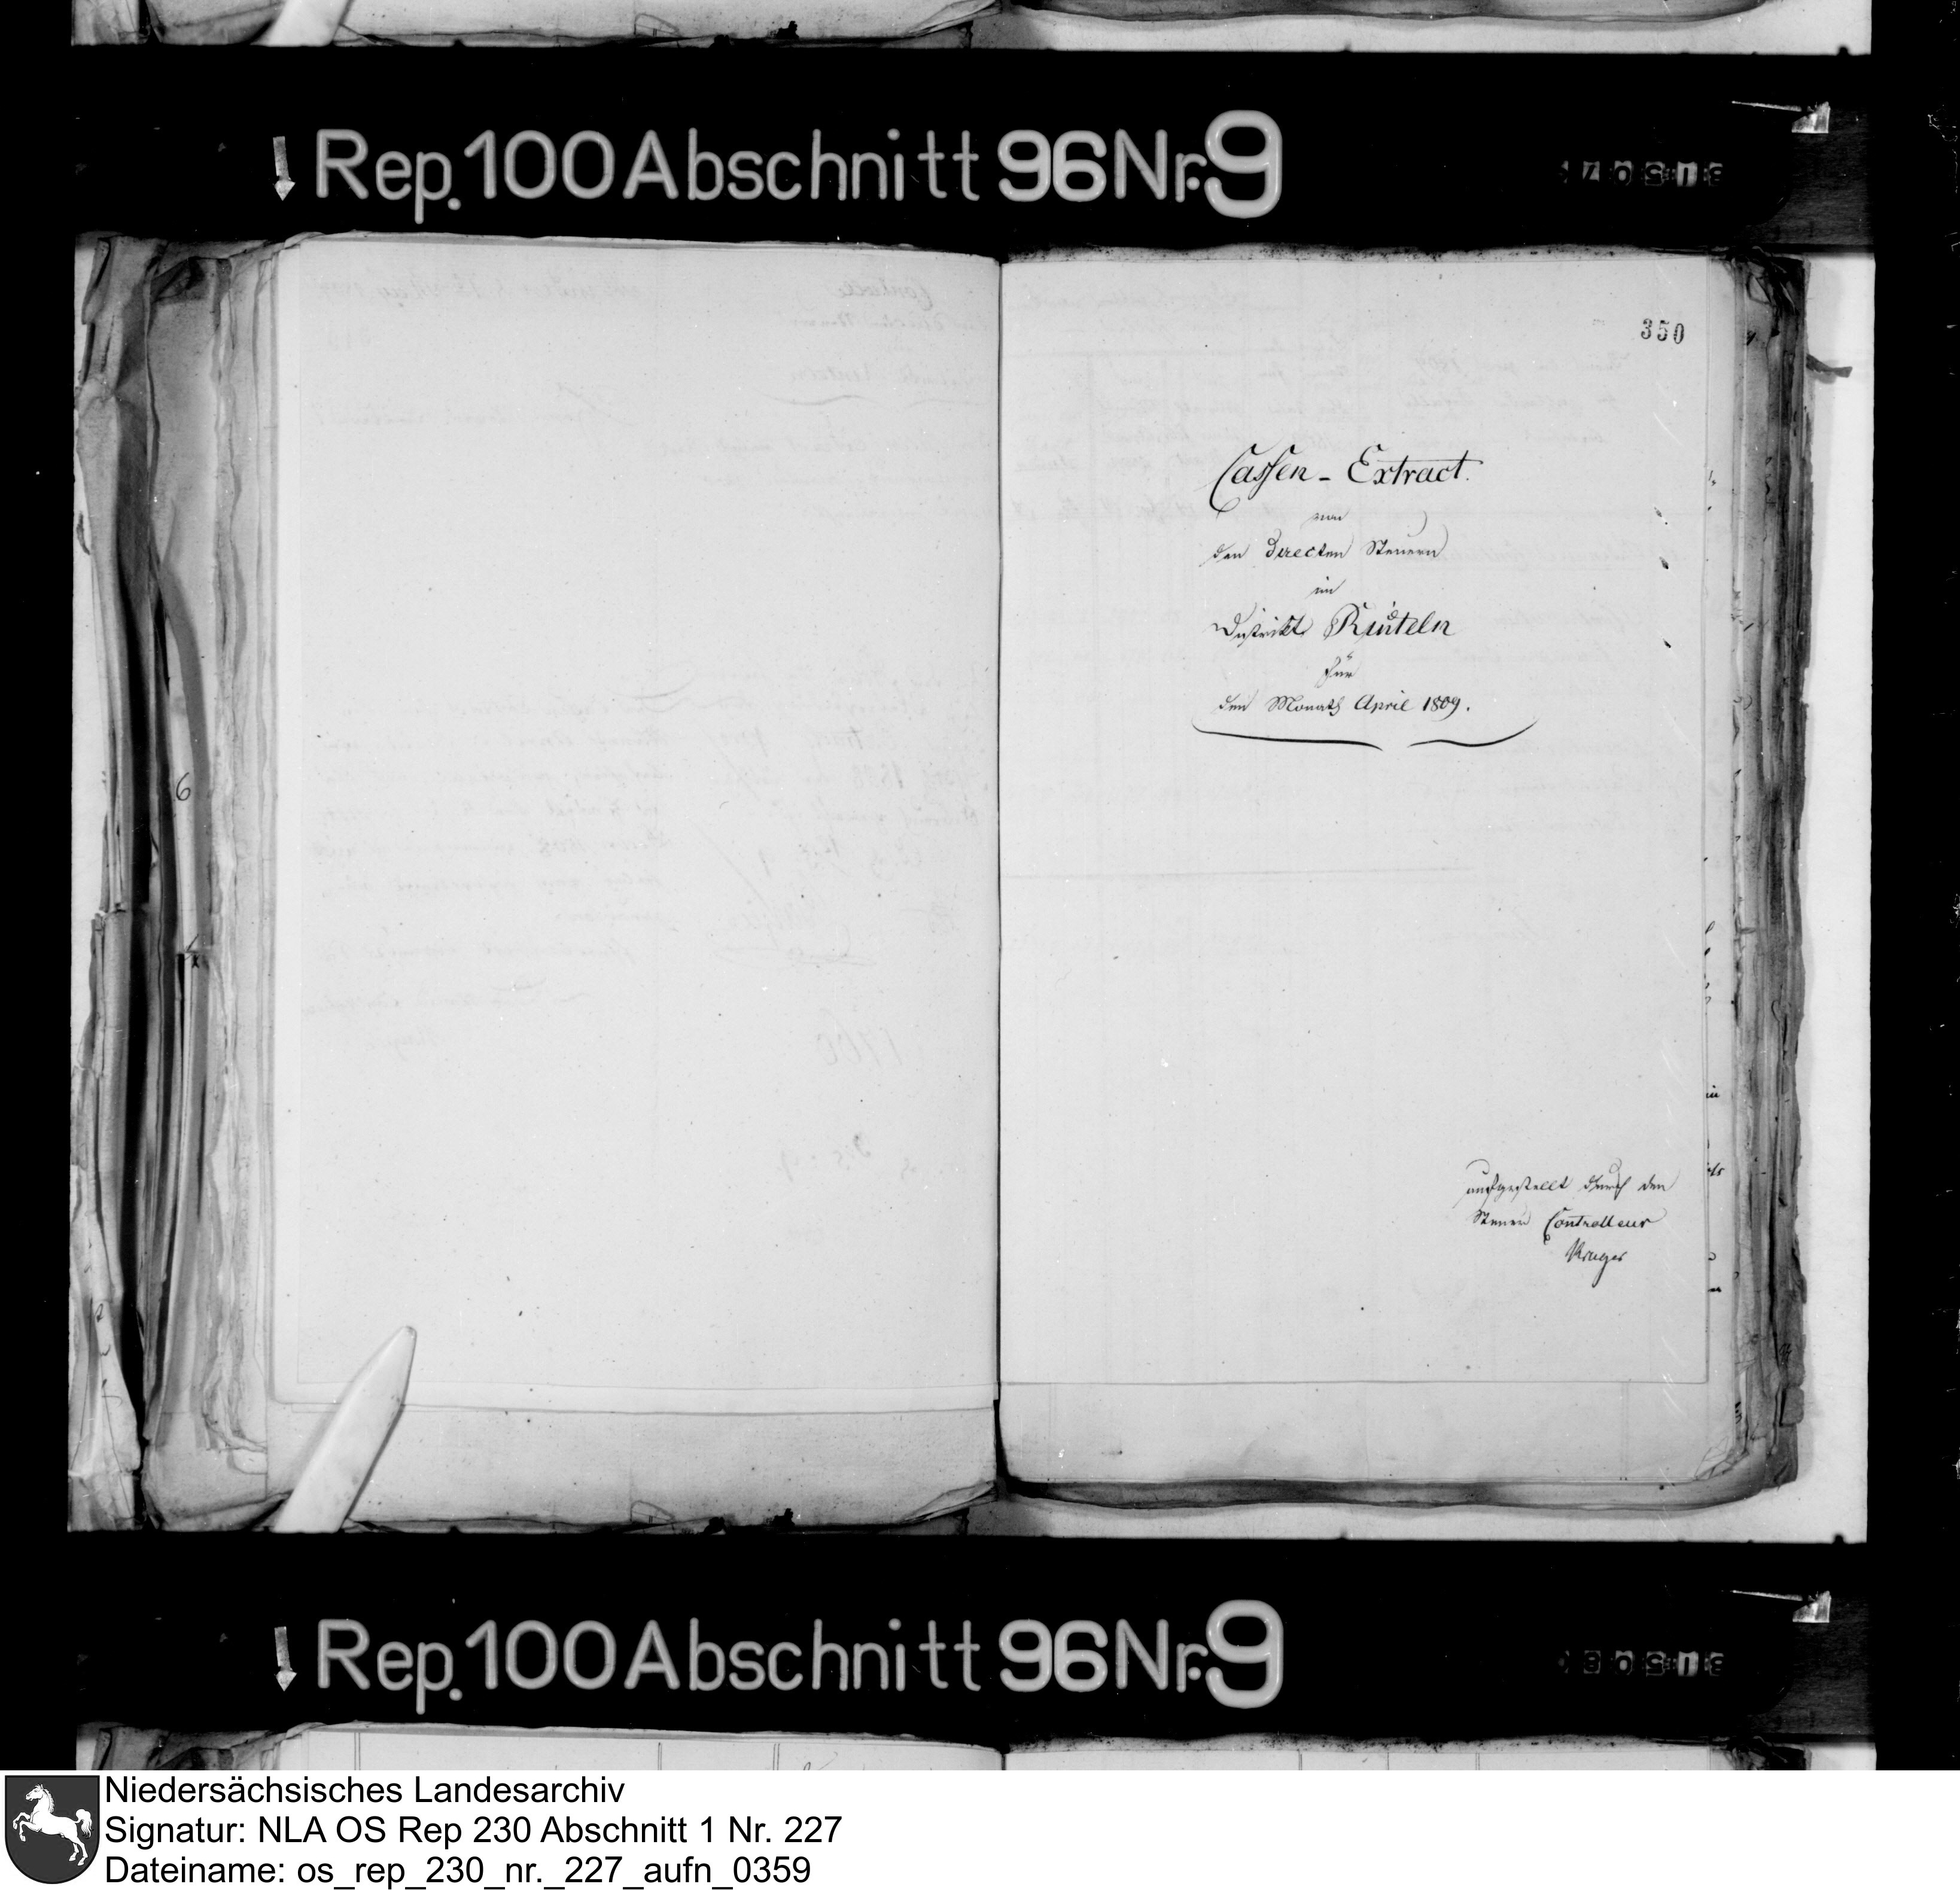 Rep. 100 Abschnitt 96 Nr. 9
350
Cassen - Extract.
von
den directen Steuern
im
Distrikte Rinteln
für
den Monath April 1809.
aufgestellt durch den
Steuer Controlleur
Kruger
6
Rep. 100 Abschnitt 96 Nr. 9
Niedersächsisches Landesarchiv
Signatur: NLA OS Rep 230 Abschnitt 1 Nr. 227
Dateiname: os_rep_230_nr._227_aufn_0359